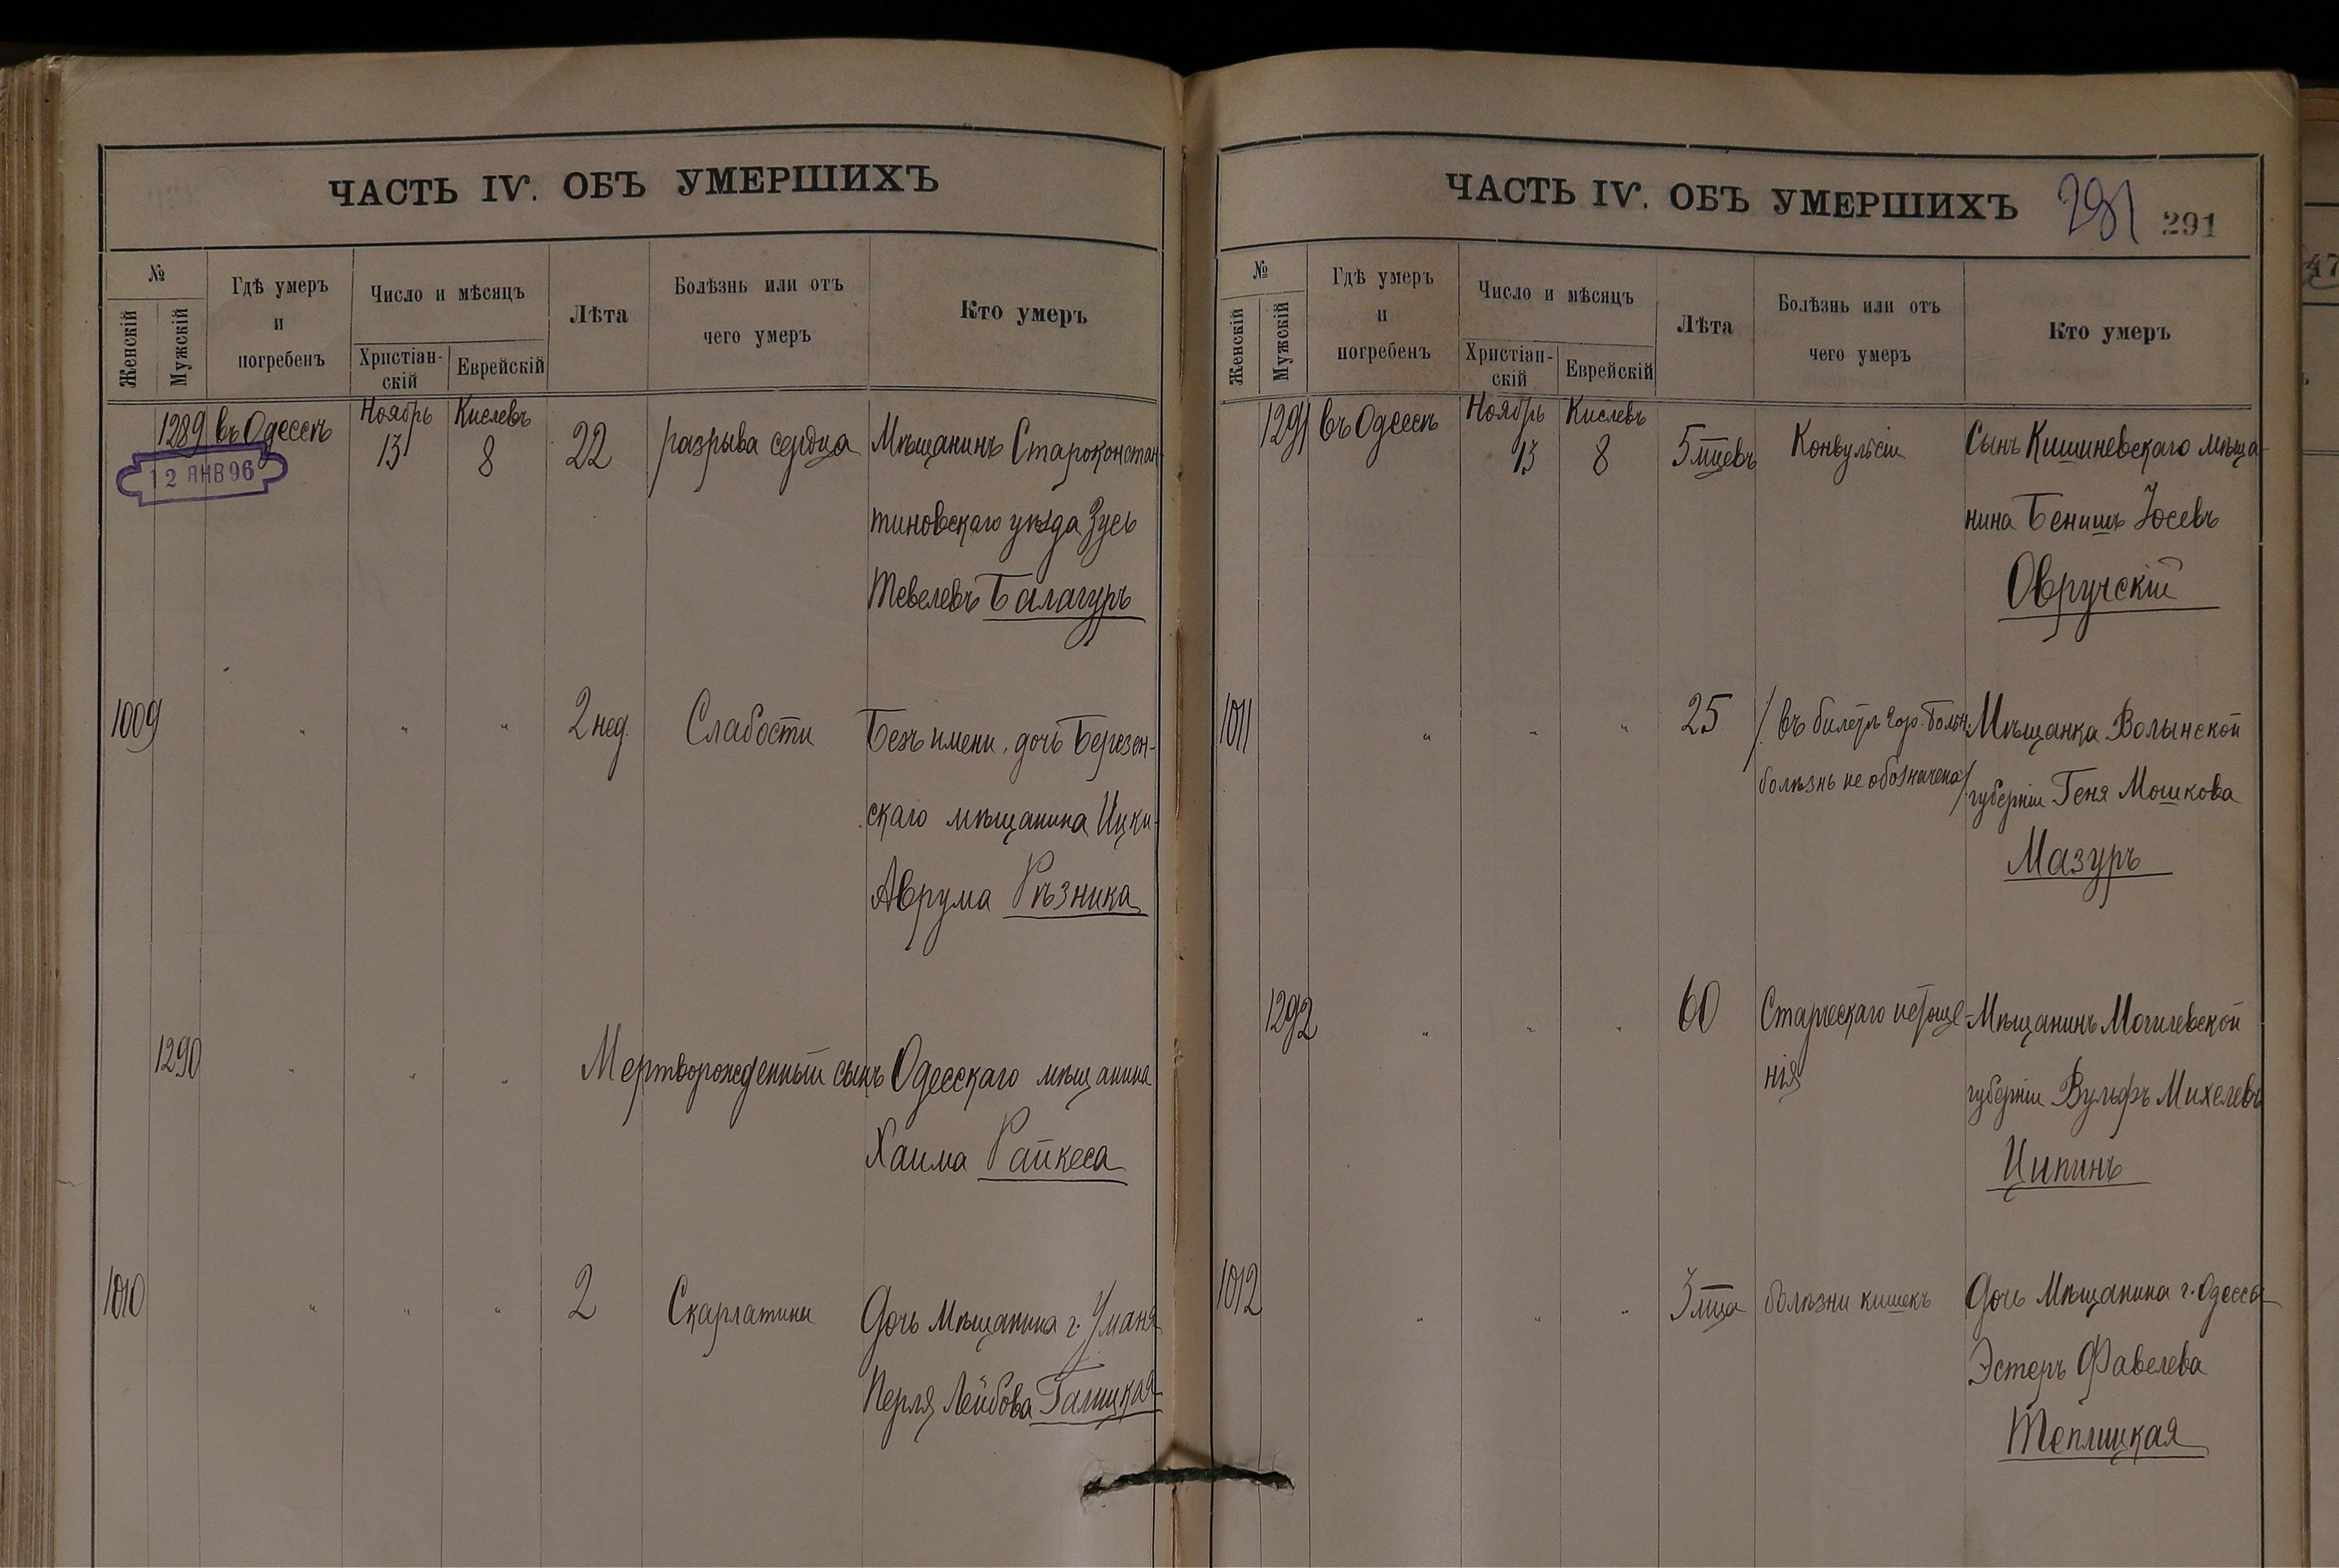 ЧАСТЬ IV. ОБЪ УМЕРШИХЪ
№
Женскій
Мужскій
Гдѣ умеръ
и
погребенъ
Число и мѣсяцъ
Христіан-
скій
Еврейскій
Лѣта
Болѣзнь или отъ
чего умеръ
Кто умеръ
1289 въ Одессѣ Ноябрь 13 Кислевъ 8 22 разрыва сердца Мѣщанинъ Староконстан-
12 ЯНВ 96
тиновскаго уѣзда Зусь
Тевелевъ Балагуръ
1009 " " " 2 нед. Слабости Безъ имени, дочь Березен-
скаго мѣщанина Ицки-
Аврума Рѣзника
1290 " " " Мертворожденный сынъ Одесскаго мѣщанина
Хаима Райкеса
1010 " " " 2 Скарлатины Дочь Мѣщанина г. Уманя
Перля Лейбова Галицкая
ЧАСТЬ IV. ОБЪ УМЕРШИХЪ 291 291
№
Женскій
Мужскій
Гдѣ умеръ
и
погребенъ
Число и мѣсяцъ
Христіан-
скій
Еврейскій
Лѣта
Болѣзнь или отъ
чего умеръ
Кто умеръ
1291 въ Одессѣ Ноябрь 13 Кислевъ 8 5 мцевъ Конвульсіи Сынъ Кишиневскаго мѣща-
нина Бенишъ Іосевъ
Овручскій
1011 " " " 25 /въ билетѣ гор. больн. Мѣщанка Волынской
болѣзнь не обозначена/ губерніи Геня Мошкова
Мазуръ
1292 " " " 60 Старческаго истоще- Мѣщанинъ Могилевской
нія губерніи Вульфъ Михелевъ
Ципинъ
1012 " " " 3 мца болѣзни кишекъ Дочь Мѣщанина г. Одессы
Эстеръ Фавелева
Теплицкая
47